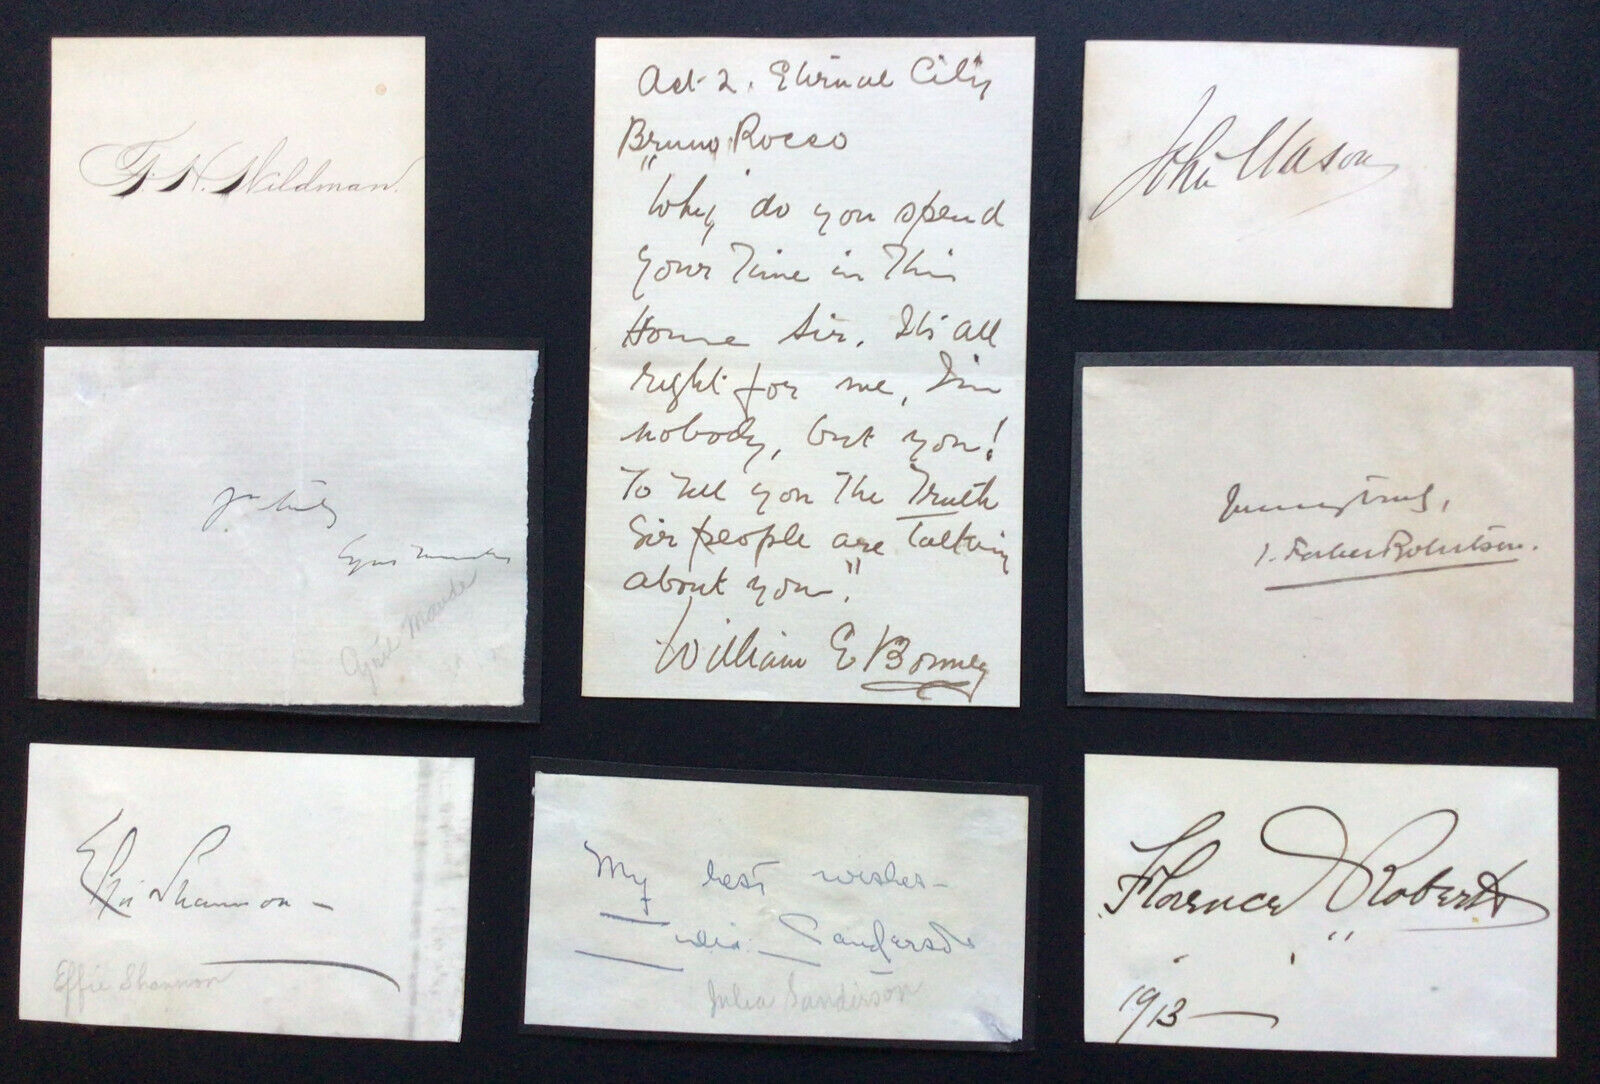 F. H. Wildman.
Act 2. Eternal City
Bruno Rocco
"Why do you spend
your Time in This
House Sir. It's all
right for me, I'm
nobody, but you!
To Tell you The Truth
Sir people are Talking
about you."
William E Bonney
John Mason
Yrs truly
Cyril Maude
Cyril Maude
Yours very truly,
J. Forbes Robertson.
Effie Shannon -
Effie Shannon
My best wishes -
Julia Sanderson
Julia Sanderson
Florence Roberts
1913 -